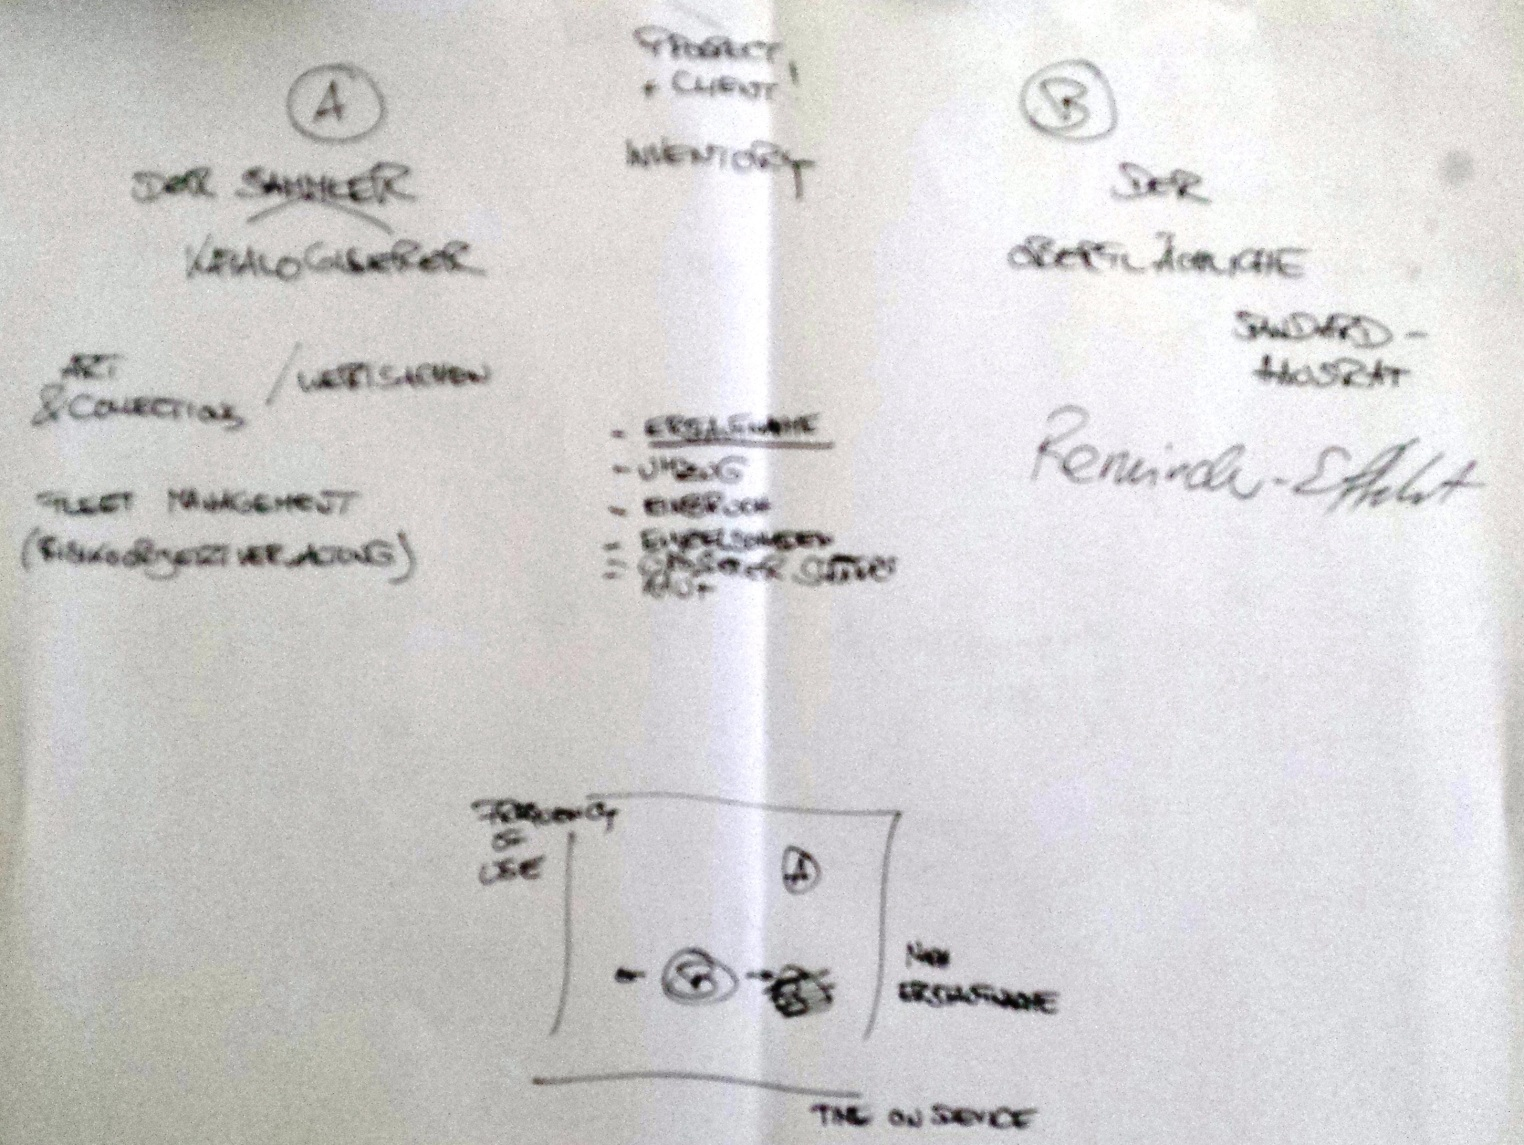 PRODUCT
+ CLIENT
INVENTORY
A
DER SAMMLER
KATALOGISIERER
ART
& COLLECTIONS
/ WERTSACHEN
FLEET MANAGEMENT
(RISIKOORIENTIERT
- ERSTAUFNAHME
- UMZUG
- EINBRUCH
-
-
B
DER
OBERFLÄCHLICHE
STANDARD -
HAUSRAT
Reminder-Effekt
FREQUENCY
OF
USE
A
B
NACH
ERSTAUFNAHME
TIME ON DEVICE